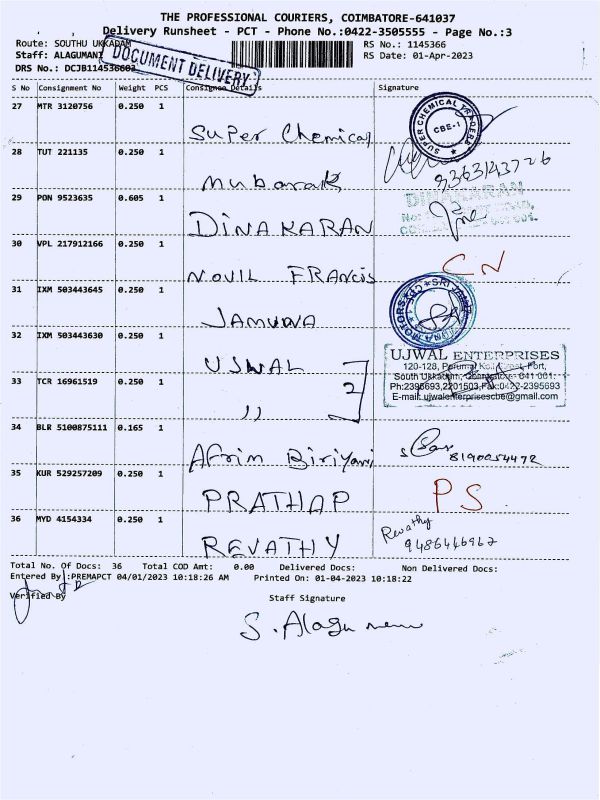 THE PROFESSIONAL COURIERS, COIMBATORE-641037
Delivery Runsheet - PCT - Phone No.:0422-3505555 - Page No.:3
Route: SOUTHU UKKADAM
RS No.: 1145366
Staff: ALAGUMANI
RS Date: 01-Apr-2023
DRS No.: DCJB114536603
DOCUMENT DELIVERY
S No Consignment No Weight PCS Consignee Details Signature
27 MTR 3120756 0.250 1 Super Chemical
SUPER CHEMICAL TRADERS CBE-1
28 TUT 221135 0.250 1 Mubarak
9363143726
29 PON 9523635 0.605 1 DINAKARAN
DINAKARAN
30 VPL 217912166 0.250 1 NOVIL FRANCIS CN
31 IXM 503443645 0.250 1 JAMUNA
32 IXM 503443630 0.250 1 UJWAL
33 TCR 16961519 0.250 1 ,, 2
UJWAL ENTERPRISES
120-128, Perumal Koil Street, Fort,
South Ukkadam, Coimbatore- 641 001.
Ph:2395693,2201503,Fax:0422-2395693
E-mail: ujwalenterprisescbe@gmail.com
34 BLR 5100875111 0.165 1 Afrim Biriyani
8190054472
35 KUR 529257209 0.250 1 PRATHAP PS.
36 MYD 4154334 0.250 1 REVATHY
Revathy
9486446967
Total No. Of Docs: 36 Total COD Amt: 0.00 Delivered Docs: Non Delivered Docs:
Entered By :PREMAPCT 04/01/2023 10:18:26 AM Printed On: 01-04-2023 10:18:22
Verified By
Staff Signature